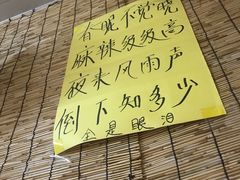 春晓不觉晓
麻辣级级高
夜来风雨声
倒下知多少
全是眼泪